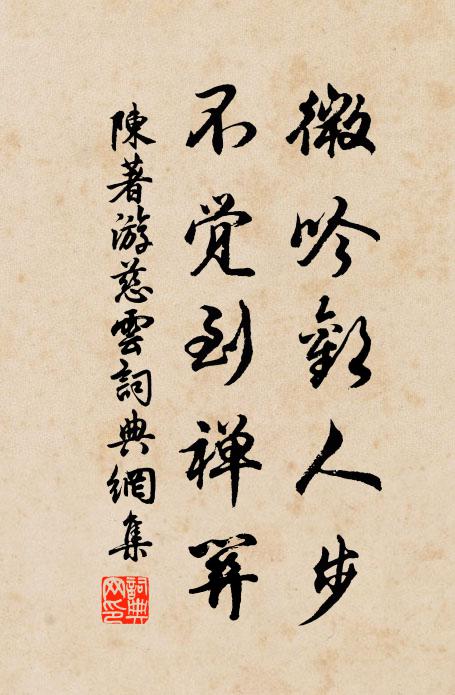 微吟勸人步
不觉到禅關
陳著游慈雲詞典網集
詞典
网印